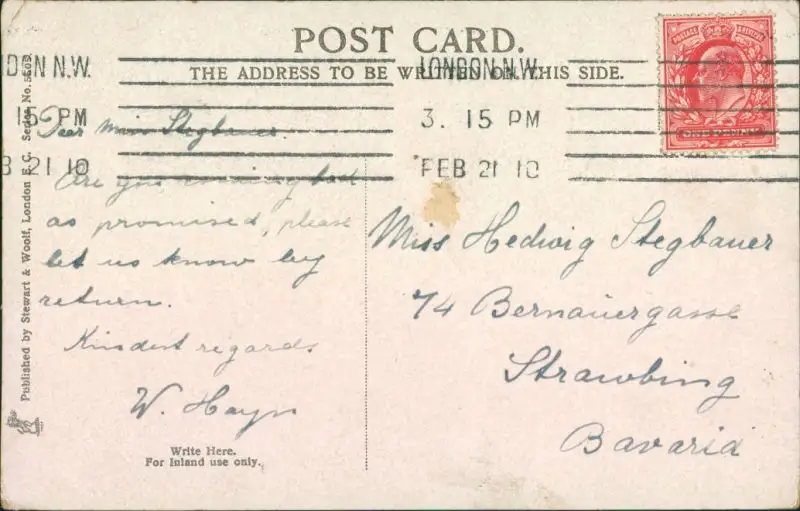 POST CARD.
THE ADDRESS TO BE WRITTEN ON THIS SIDE.
LONDON. N.W.
3. 15 PM
FEB 21 10
DON N.W.
15 PM
B 21 10
POSTAGE & REVENUE
ONE PENNY
Dear Miss Stegbauer.
Are you coming back
as promised, please
let us know by
return.
Kindest regards
W. Hayn
Write Here.
For Inland use only.
Miss Hedwig Stegbauer
74 Bernauergasse
Strawbing
Bavaria
Published by Stewart & Woolf, London E.C. Series No.